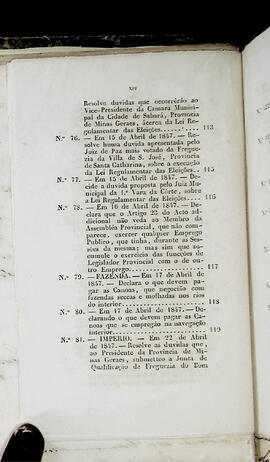 XIV
Resolve duvidas que occorrêrão ao
Vice-Presidente da Camara Munici-
pal da Cidade de Sabará, Provincia
de Minas Geraes, ácerca da Lei Re-
gulamentar das Eleições 113
N.º 76. — Em 15 de Abril de 1847. — Re-
solve huma duvida apresentada pelo
Juiz de Paz mais votado da Fregue-
zia da Villa de S. José, Provincia
de Santa Catharina, sobre a execução
da Lei Regulamentar das Eleições. 115
N.º 77. — Em 15 de Abril de 1847. — De-
cide a duvida proposta pelo Juiz Mu-
nicipal da 1.ª Vara da Côrte, sobre
a Lei Regulamentar das Eleições 116
N.º 78. — Em 16 de Abril de 1847. — De-
clara que o Artigo 23 do Acto ad-
dicional não veda ao Membro da
Assembléa Provincial, que não com-
parece, exercer qualquer Emprego
Publico, que tinha, durante as Ses-
sões da mesma; mas sim que ac-
cumule o exercicio das funcções de
Legislador Provincial com o de ou-
tro Emprego. 117
N.º 79. — FAZENDA. — Em 17 de Abril
de 1847. — Declara o que devem pa-
gar as Canoas, que negocião com
fazendas seccas e molhadas nos rios
do interior. 118
N.º 80. — Em 17 de Abril de 1847. — De-
clarando o que devem pagar as Ca-
noas que se empregão na navegação
interior. 119
N.º 81. — IMPERIO. — Em 22 de Abril
de 1847. — Resolve as duvidas que,
ao Presidente da Provincia de Mi-
nas Geraes, submetteo a Junta de
Qualificação da Freguezia do Dom